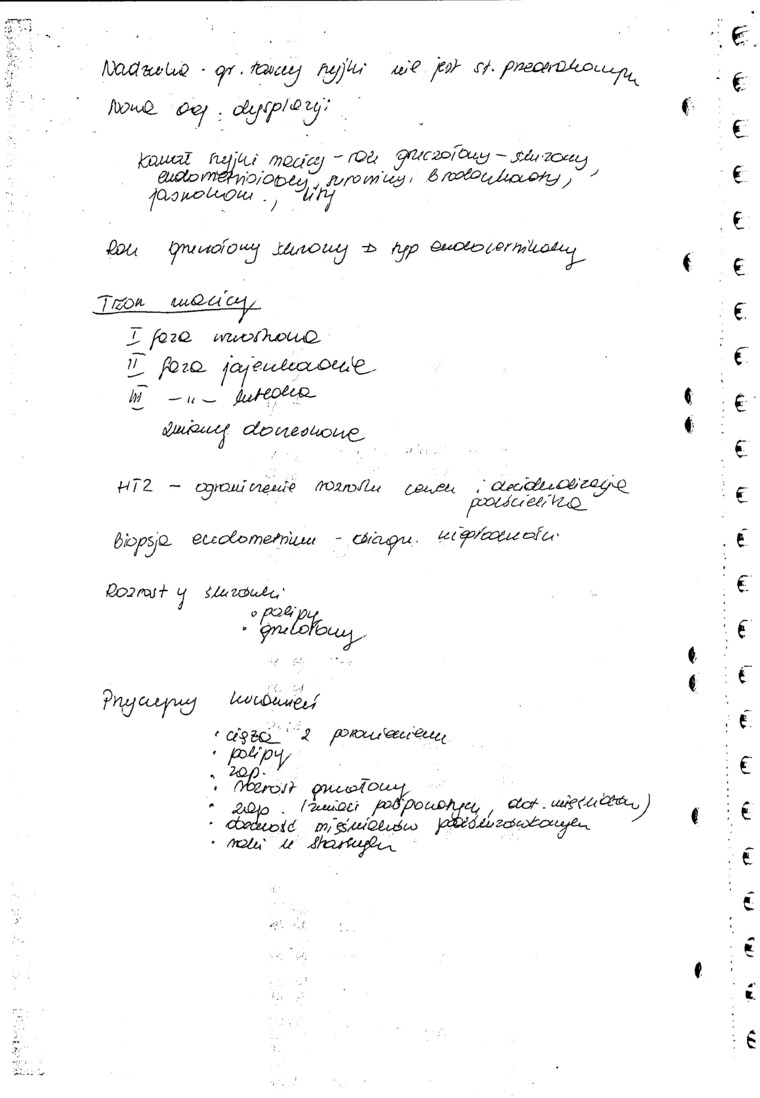 Nadżerka - gr. tarczy szyjki nie jest st. przedrakowym
Nowa dysplazji:
Kanał szyjki macicy - rak gruczołowy - śluzowy,
endometrioidalny, surowiczy, brodawkowaty,
jasnokom., lity
Rak gruczołowy śluzowy → typ endocerwikalny
Trzon macicy
I faza wzrostowa
II faza jajeczkowanie
III -"- lutealna
zmiany doczesnowe
HTZ - ograniczenie rozrostu i decidualizacja
podścieliska
Biopsja endometrium - diagn. niepłodności
Rozrosty śluzówki
• polipy
• gruczołowy
Przyczyny krwawień
• ciąża z poronieniem
• polipy
• zap.
• rozrost gruczołowy
• zap. (zmian podpowierzch, dot. mięśniaków)
• obecność mięśniaków podśluzówkowych
• raki u starszych